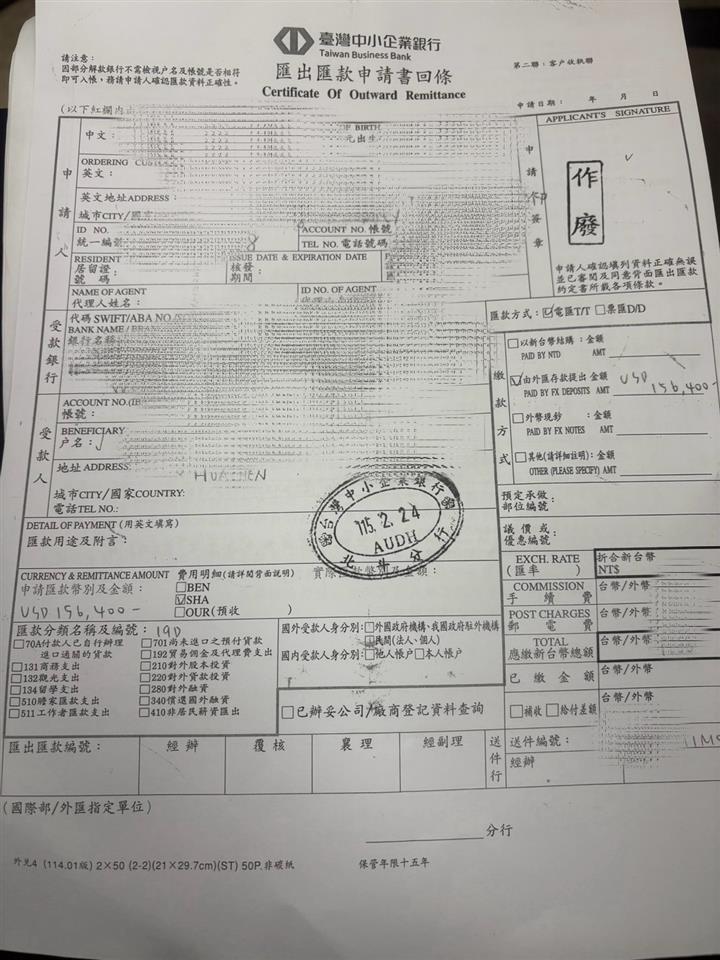 臺灣中小企業銀行
Taiwan Business Bank
請注意：
因部分解款銀行不需檢視戶名及帳號是否相符
即可入帳，務請申請人確認匯款資料正確性。
匯出匯款申請書回條
Certificate Of Outward Remittance
第二聯：客戶收執聯
申請日期： 年 月 日
(以下紅欄內
申請人
中文：
OF BIRTH
ORDERING
英文：
英文地址ADDRESS：
城市CITY/國
ID NO.
統一編號
8
ACCOUNT NO. 帳號
TEL NO. 電話號碼
RESIDENT
居留證：
號 碼
ISSUE DATE & EXPIRATION DATE
核發：
期間
NAME OF AGENT
代理人姓名：
ID NO. OF AGENT
申請 簽章
APPLICANT'S SIGNATURE
作廢
申請人確認填列資料正確無誤
並已審閱及同意背面匯出匯款
約定書所載各項條款。
受款銀行
代碼 SWIFT/ABA NO
BANK NAME /
銀行名稱
匯款方式：☑電匯T/T □票匯D/D
繳款方式
□以新台幣結購：金額
PAID BY NTD AMT
☑由外匯存款提出 金額 USD
PAID BY FX DEPOSITS AMT 156,400
□外幣現鈔 ：金額
PAID BY FX NOTES AMT
□其他(請詳細註明)：金額
OTHER (PLEASE SPECIFY) AMT
受款人
ACCOUNT NO.
帳號：
BENEFICIARY
戶名：
地址 ADDRESS:
城市CITY/國家COUNTRY:
電話TEL NO.:
預定承做：
部位編號
議價或：
優惠編號
台灣中小企業銀行
115.2.24
AUDH
北斗分行
DETAIL OF PAYMENT (用英文填寫)
匯款用途及附言：
CURRENCY & REMITTANCE AMOUNT
申請匯款幣別及金額：
USD 156,400-
費用明細(請詳閱背面說明)
□BEN
☑SHA
□OUR(預收 )
EXCH. RATE
(匯率)
折合新台幣
NT$
COMMISSION
手續費
台幣/外幣
POST CHARGES
郵電費
台幣/外幣
TOTAL
應繳新台幣總額
台幣/外幣
已繳金額
台幣/外幣
□補收 □給付差額
匯款分類名稱及編號：19D
□70A付款人已自行辦理
進口通關的貨款
□131商務支出
□132觀光支出
□134留學支出
□510贍家匯款支出
□511工作者匯款支出
□701尚未進口之預付貨款
□192貿易佣金及代理費支出
□210對外股本投資
□220對外貸款投資
□280對外融資
□340償還國外融資
□410非居民薪資匯出
國外受款人身分別：□外國政府機構、我國政府駐外機構
民間(法人、個人)
國內受款人身分別：□他人帳戶□本人帳戶
□已辦妥公司/廠商登記資料查詢
匯出匯款編號：
經辦
覆核
襄理
經副理
送件行
送件編號：
經辦
(國際部/外匯指定單位)
分行
外兌4 (114.01版) 2×50 (2-2)(21×29.7cm)(ST) 50P.非碳紙
保管年限十五年